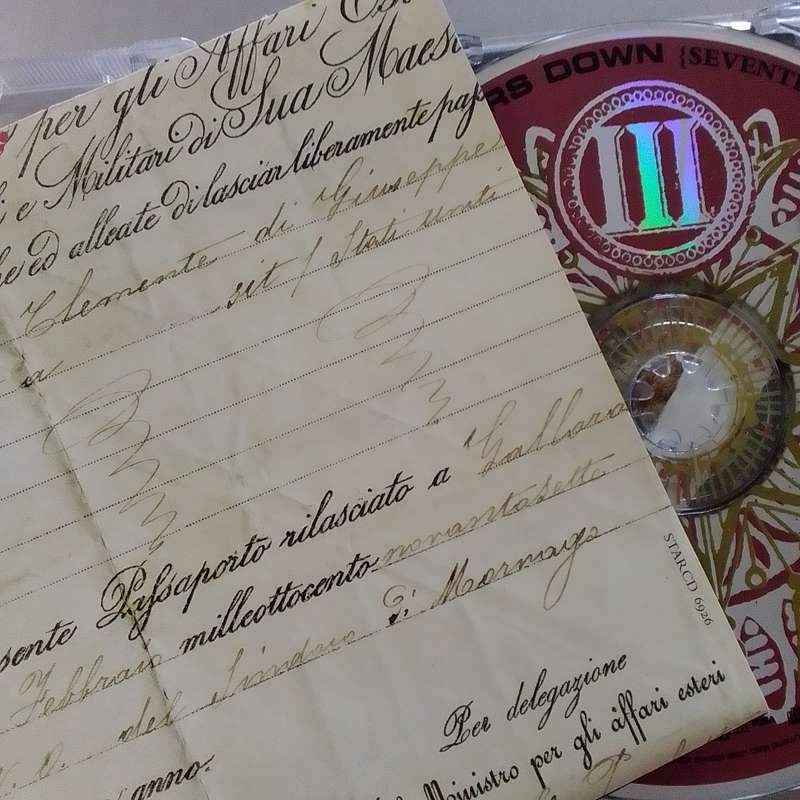 per gli Affari Est
e Militari di Sua Maest
he ed alleate di lasciar liberamente pass
Clemente di Giuseppe
a sit / Stati Uniti
sente Passaporto rilasciato a Gallara
milleottocento novantasette
Febbraio del Sindaco di Mornago
anno.
Per delegazione
Ministro per gli affari esteri
STARCD 6926
RS DOWN {SEVENTE
III